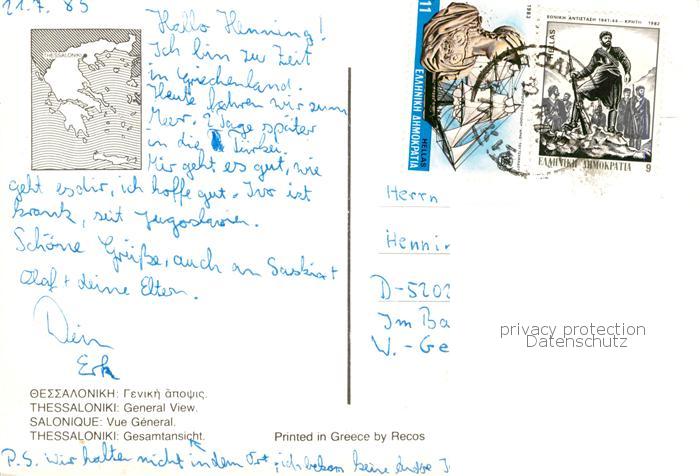 21.7.85
Hallo Henning!
Ich bin zur Zeit
in Griechenland.
Heute fahren wir zum
Meer. 2 Tage später
in die Türkei.
Mir geht es gut, wie
geht es dir, ich hoffe gut. Ivo ist
krank, seit Jugoslavien.
Schöne Grüße, auch an Saskia +
Olaf + deine Eltern.
Dein
Erk
THESSALONIKI
ΘΕΣΣΑΛΟΝΙΚΗ: Γενική άποψις.
THESSALONIKI: General View.
SALONIQUE: Vue Géneral.
THESSALONIKI: Gesamtansicht.
Printed in Greece by Recos
P.S. Wir halten nicht in dem Ort, ich bekam keine andre
11
1983
ΕΛΛΗΝΙΚΗ ΔΗΜΟΚΡΑΤΙΑ
HELLAS
ΕΘΝΙΚΗ ΑΝΤΙΣΤΑΣΗ 1941-44 - ΚΡΗΤΗ 1982
HELLAS
ΕΛΛΗΝΙΚΗ ΔΗΜΟΚΡΑΤΙΑ 9
Herrn
Hennin
D-5202
Im Ba
W.-Ge
privacy protection
Datenschutz